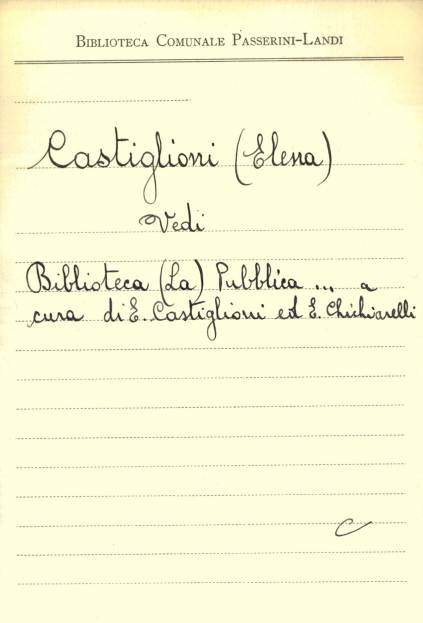 Biblioteca Comunale Passerini-Landi
Castiglioni (Elena)
Vedi
Biblioteca (La) Pubblica ... a
cura di E. Castiglioni ed E. Chichiarelli
C